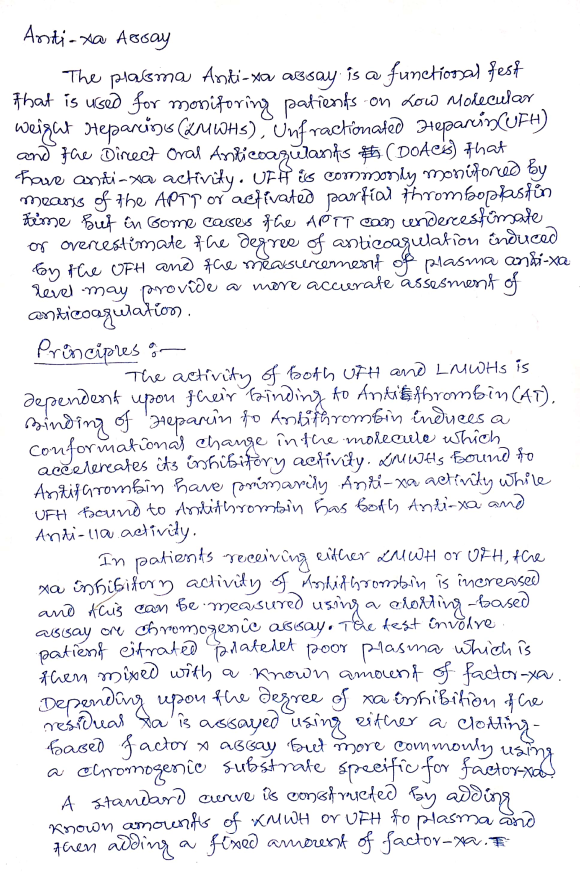 Anti-xa Assay
The plasma Anti-xa assay is a functional test
that is used for monitoring patients on Low Molecular
weight Heparins (LMWHs), Unfractionated Heparin(UFH)
and the Direct Oral Anticoagulants (DOACs) that
have anti-xa activity. UFH is commonly monitored by
means of the APTT or activated partial thromboplastin
time but in some cases the APTT can underestimate
or overestimate the degree of anticoagulation induced
by the UFH and the measurement of plasma anti-xa
level may provide a more accurate assesment of
anticoagulation.
Principles :-
The activity of both UFH and LMWHs is
dependent upon their binding to Antithrombin (AT).
Binding of Heparin to Antithrombin induces a
conformational change in the molecule which
accelerates its inhibitory activity. LMWHs bound to
Antithrombin have primarily Anti-xa activity while
UFH bound to Antithrombin has both Anti-xa and
Anti-IIa activity.
In patients receiving either LMWH or UFH, the
xa inhibitory activity of Antithrombin is increased
and this can be measured using a clotting-based
assay or chromogenic assay. The test involve
patient citrated platelet poor plasma which is
then mixed with a known amount of factor-xa.
Depending upon the degree of xa inhibition the
residual xa is assayed using either a clotting-
based factor x assay but more commonly using
a chromogenic substrate specific for factor-xa.
A standard curve is constructed by adding
known amounts of LMWH or UFH to plasma and
then adding a fixed amount of factor-xa.